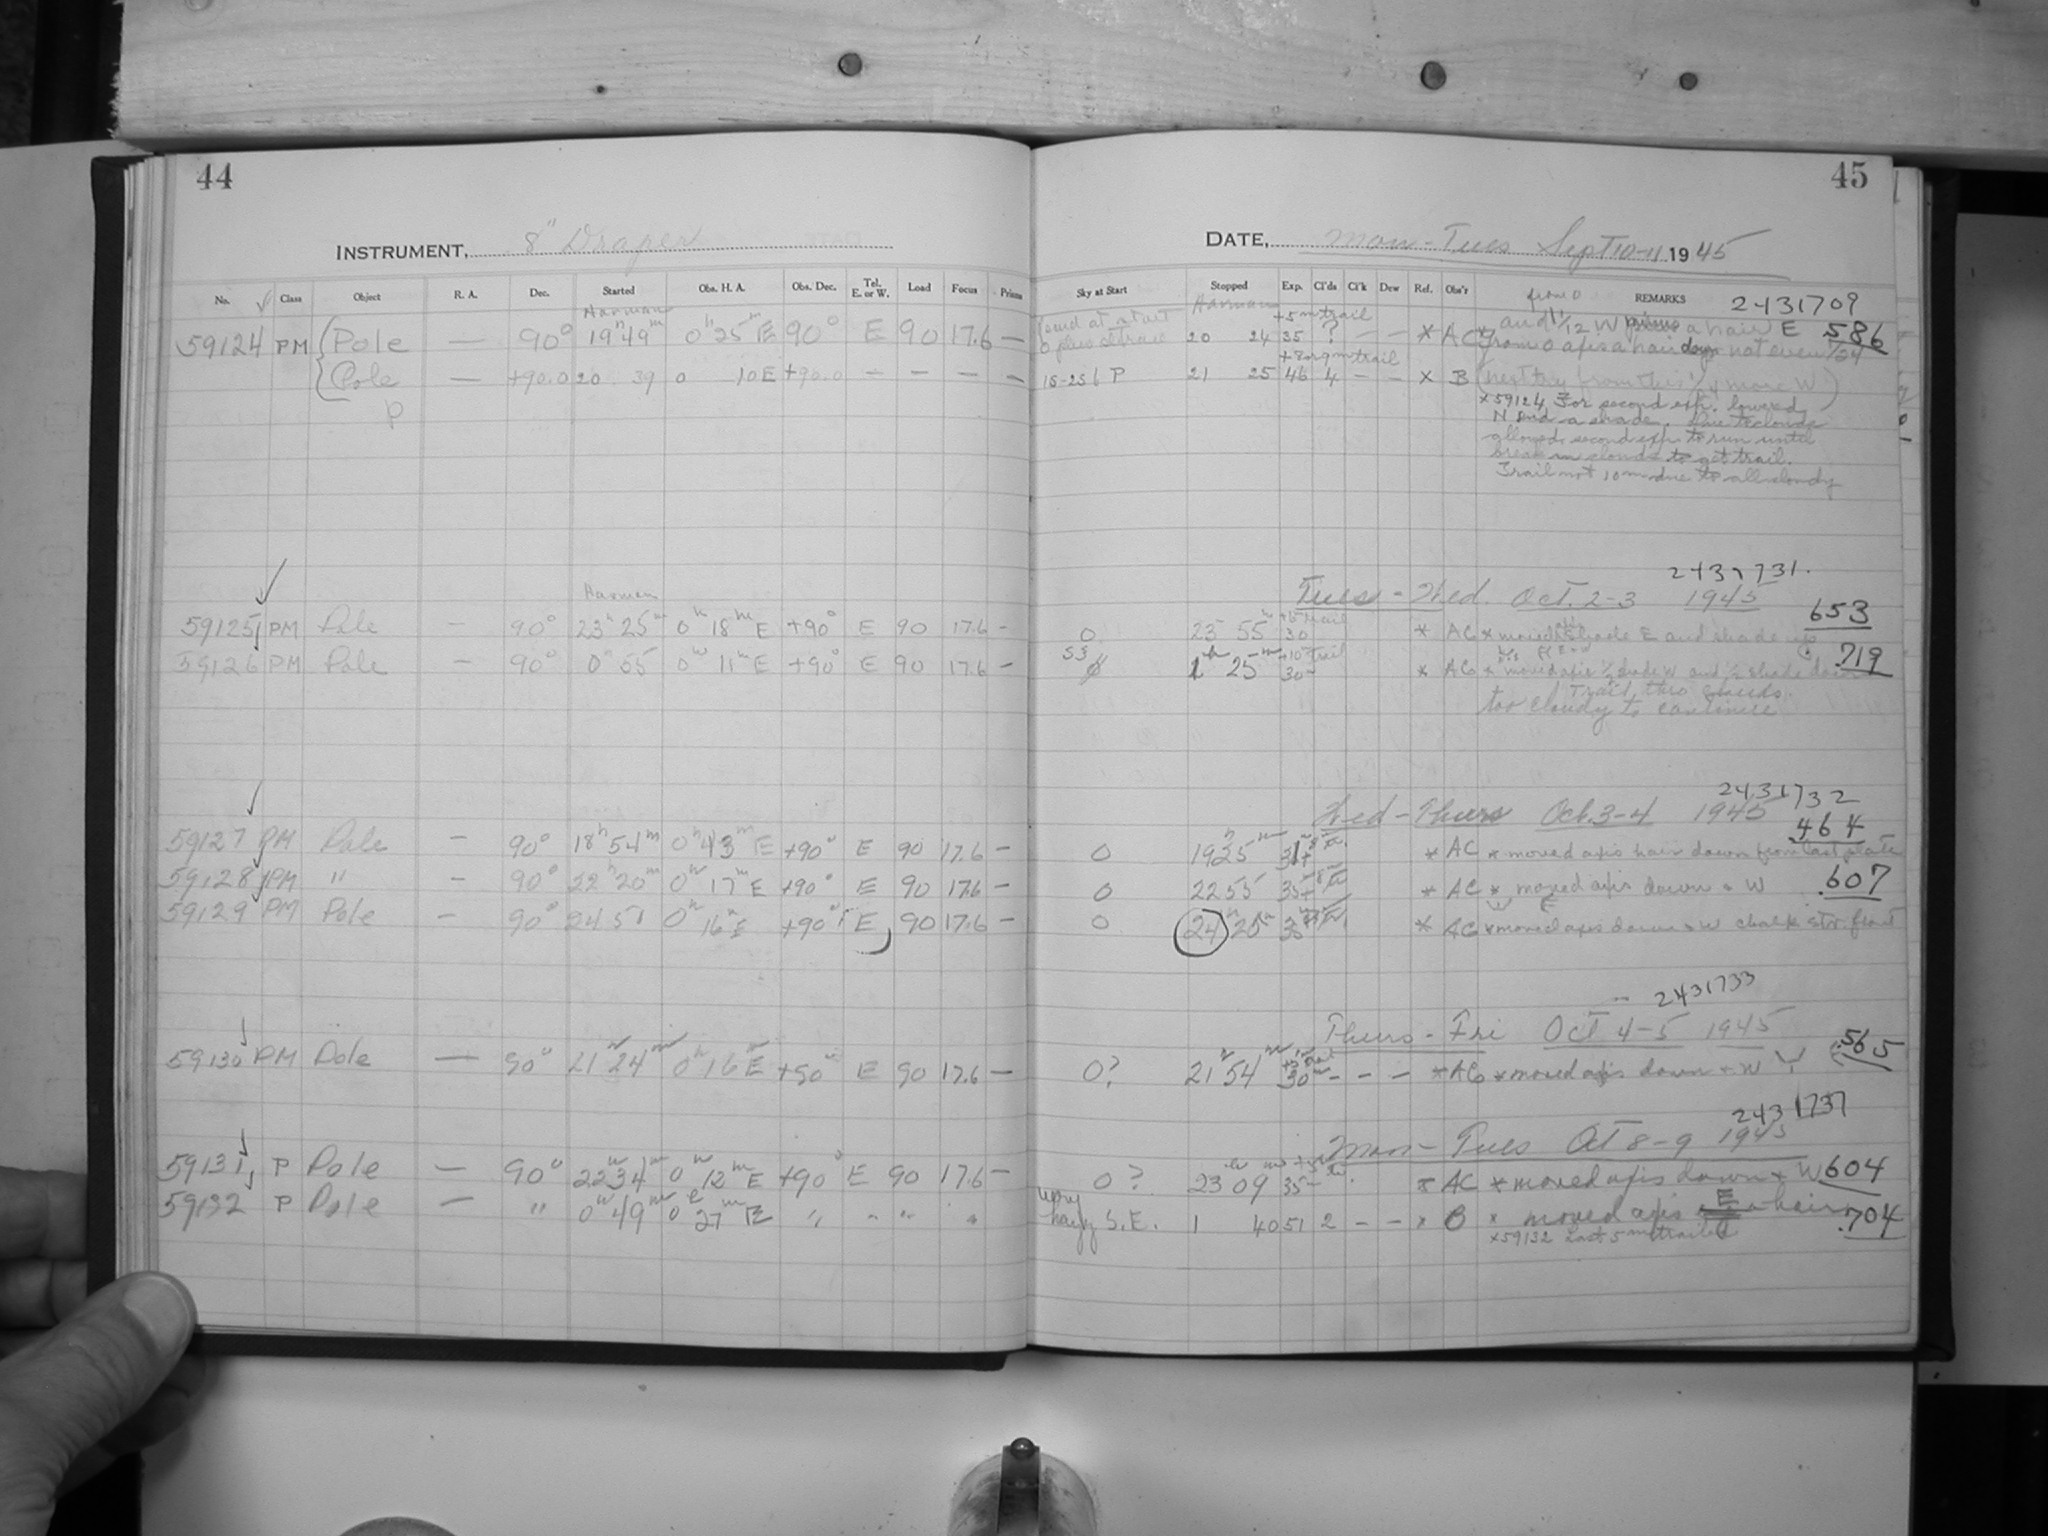 44
45
INSTRUMENT, 8" Draper
DATE, Mon-Tues Sept 10-11 1945
No. Class Object R. A. Dec. Started Obs. H. A. Obs. Dec. Tel. E. or W. Load Focus Prism Sky at Start Stopped Exp. Cl'ds Cl'k Dew Ref. Obs'r REMARKS
2431709
Harman Harman +5m trail from 0
59124 PM Pole — 90° 19h 49m 0h 25m E 90° E 90 17.6 — 20 24 35 ? — — * AC * and 1/12 W a hair E 586
from 0 axis a hair not even 1/24
Pole — +90.0 20 39 0 10 E +90.0 — — — — 15-256 P 21 25 46 4 — — x B (next try from this more W)
P
x 59124 For second exp. lowered
N end a shade. Due to clouds
allowed second exp. to run until
break in clouds to get trail.
Trail not 10m due to all cloudy
2431731.
Tues - Wed. Oct. 2-3 1945
Harman
59125 PM Pole — 90° 23h 25m 0h 18m E +90° E 90 17.6 — 0 23 55 30 * AC * moved shade E and shade up 653
59126 PM Pole — 90° 0h 55 0h 11m E +90° E 90 17.6 — 1h 25m +10 trail 30 * AC * moved axis 1/2 shade W and 1/2 shade down .719
Trail thro clouds.
too cloudy to continue
2431732
Wed - Thurs Oct. 3-4 1945
59127 PM Pole — 90° 18h 54m 0h 43m E +90° E 90 17.6 — 0 19 25 31 * AC * moved axis hair down from last plate .464
59128 PM " — 90° 22h 20m 0h 17m E +90° E 90 17.6 — 0 22 55 35 * AC * moved axis down + W .607
59129 PM Pole — 90° 24 51 0h 16m E +90° E 90 17.6 — 0 24 * AC * moved axis down + W
2431733
Thurs - Fri Oct 4-5 1945
59130 PM Pole — 90° 21h 24m 0h 16 E +90° E 90 17.6 — 0? 21h 54m 30 — — — * AC * moved axis down + W .565
2431737
Mon - Tues Oct 8-9 1945
59131 P Pole — 90° 22 34 0h 12m E +90° E 90 17.6 — 0? 23 09 35 * AC * moved axis down + W 604
59132 P Pole — " 0h 49m 0 27m E " " " " very hazy S.E. 1 40 51 2 — — x B x moved axis E a hair .704
x 59132 Last 5m trailed